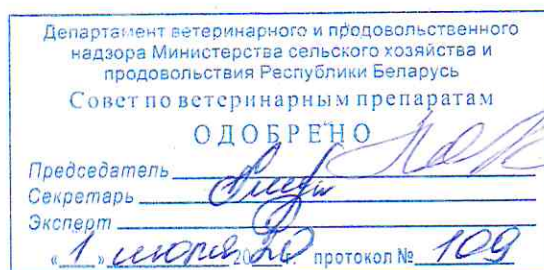 Департамент ветеринарного и продовольственного
надзора Министерства сельского хозяйства и
продовольствия Республики Беларусь
Совет по ветеринарным препаратам
ОДОБРЕНО
Председатель
Секретарь
Эксперт
«1» июня 2020г. протокол № 109